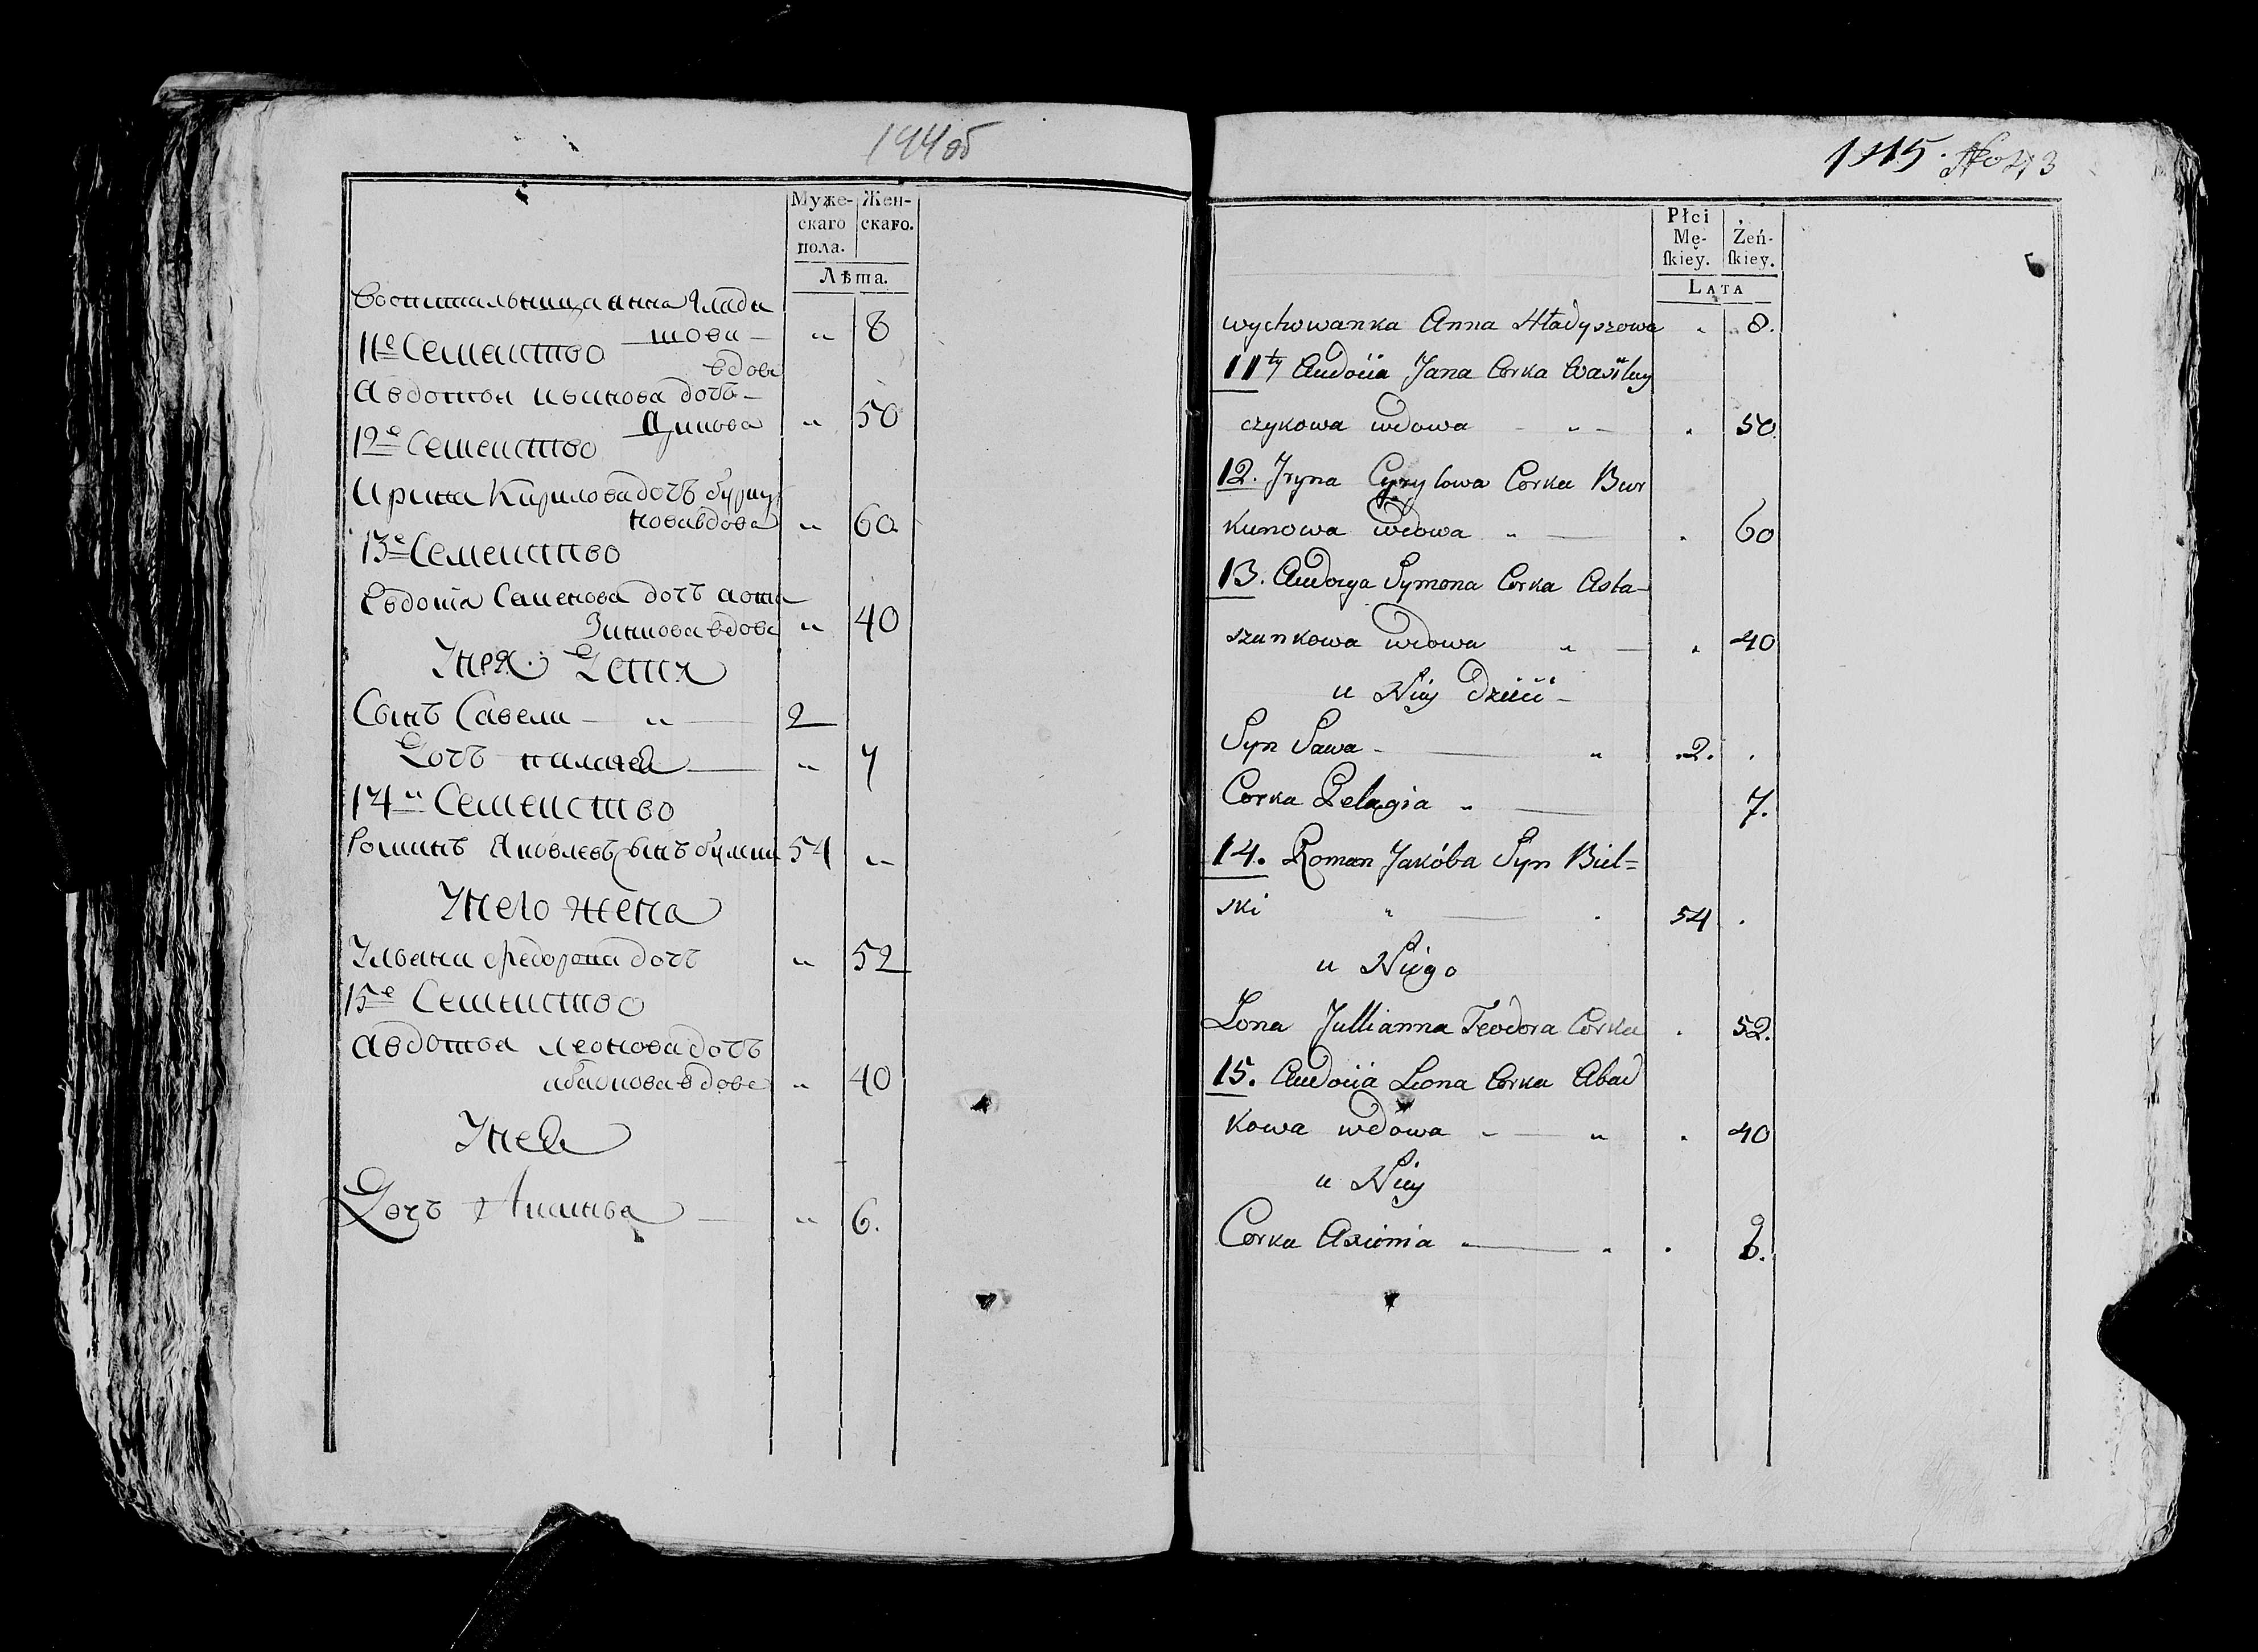 144об
Муже- Жен-
скаго скаго.
пола.
Лѣта.
Воспитальница анна Глади
шова — „ 8
11е Семеиство
вдова
Авдотья иванова дочь —
„ 50
12е Семеиство
Ирина Кирилова дочь бурку
нова вдова „ 60
13е Семеиство
Евдотія Семенова дочь аста
вдова „ 40
Унея Детя
Сынъ Савели — „ — 2
Дочь палагея — „ 7
14е Семеиство
Романъ Яковлевъ сынъ 54 „
Унего жена
Ульяна Федорова дочь „ 52
15е Семеиство
Авдотья леонова дочь
абадкова вдова „ 40
Унея
Дочь — „ 6.
145. No 43
Płci Żeń-
Mę- ſkiey.
ſkiey.
LATA
wychowanka Anna Hładyszowa . 8.
11ty Audocia Jana Corka Wasiluy
czykowa wdowa — „ — . 50.
12. Jryna Cyrylowa Corka Bur
kunowa wdowa „ — . 60
13. Audocya Symona Corka Asta-
szunkowa wdowa „ — . 40
u Niey Dzieci —
Syn Sawa — „ .2. .
Corka Pelagia „ — 7.
14. Roman Jakóba Syn Biel=
ski „ — . 54 .
u Niego
Zona Jullianna Teodora Corka . 52.
15. Audocia Leona Corka Abad
kowa wdowa — „ . 40
u Niey
Corka Axienia „ — „ . 6.